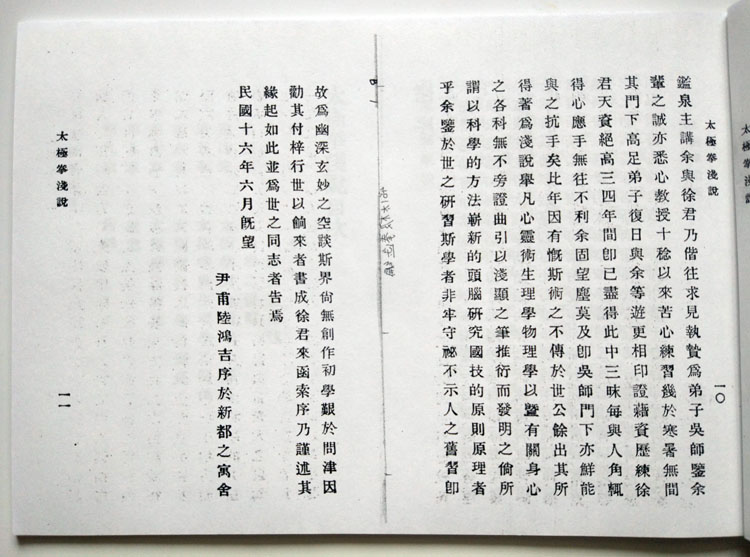 太極拳淺說
鑑泉主講余與徐君乃偕往求見執贄爲弟子吳師鑒余
輩之誠亦悉心教授十稔以來苦心練習幾於寒暑無間
其門下高足弟子復日與余等遊更相印證藉資歷練徐
君天資絕高三四年間卽已盡得此中三昧每與人角輒
得心應手無往不利余固望塵莫及卽吳師門下亦鮮能
與之抗手矣比年因有慨斯術之不傳於世公餘出其所
得著爲淺說舉凡心靈術生理學物理學以曁有關身心
之各科無不旁證曲引以淺顯之筆推衍而發明之倘所
謂以科學的方法嶄新的頭腦研究國技的原則原理者
乎余鑒於世之研習斯學者非牢守祕不示人之舊習卽
一〇
故爲幽深玄妙之空談斯界尙無創作初學艱於問津因
勸其付梓行世以餉來者書成徐君來函索序乃謹述其
緣起如此並爲世之同志者告焉
民國十六年六月旣望
尹甫陸鴻吉序於新都之寓舍
太極拳淺說
一一
太極拳淺說